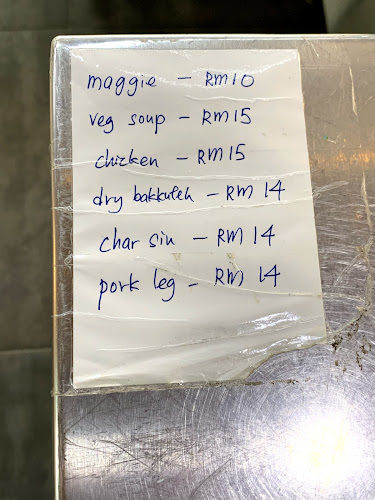 maggie - RM10
veg soup - RM15
chicken - RM15
dry bakkuteh - RM 14
char siu - RM 14
pork leg - RM 14